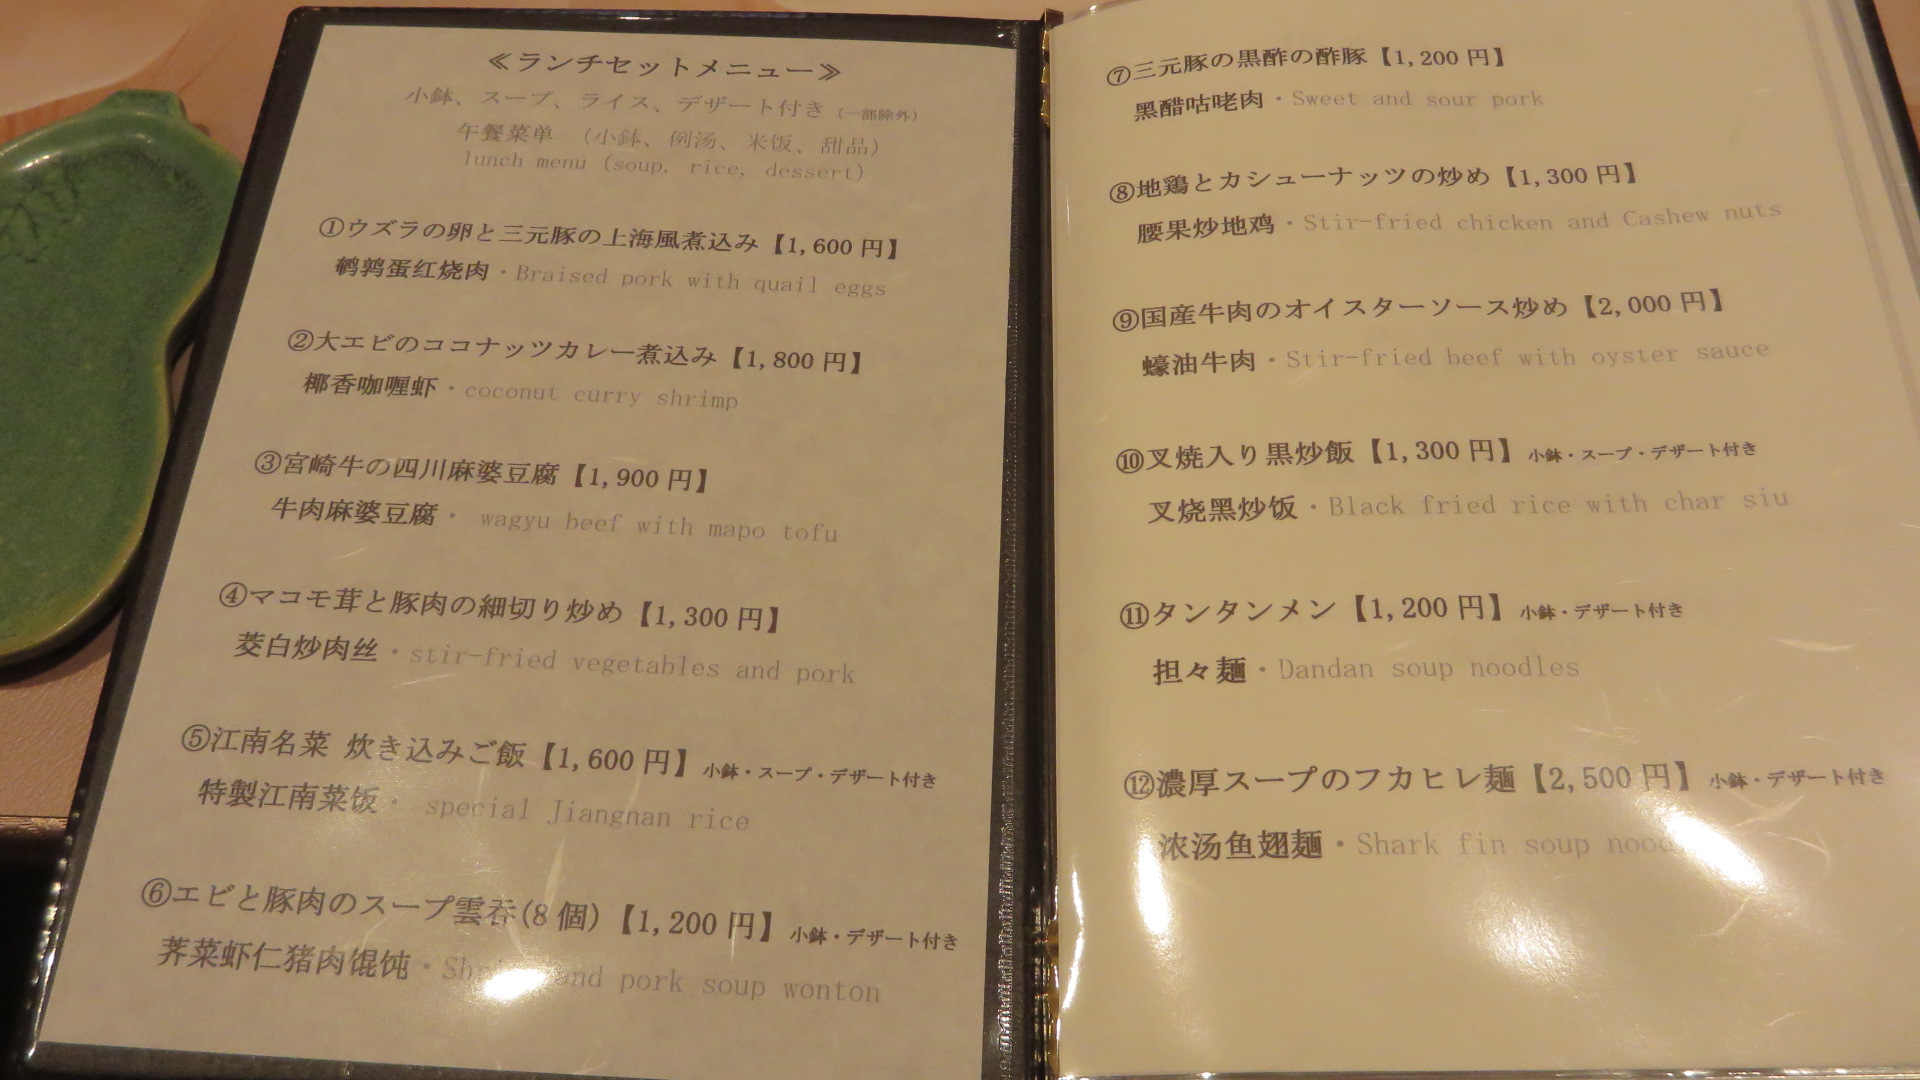 ≪ランチセットメニュー≫
小鉢、スープ、ライス、デザート付き(一部除外)
午餐菜单 (小鉢、例汤、米饭、甜品)
lunch menu (soup, rice, dessert)
①ウズラの卵と三元豚の上海風煮込み【1,600 円】
鹌鹑蛋红烧肉・Braised pork with quail eggs
②大エビのココナッツカレー煮込み【1,800 円】
椰香咖喱虾・coconut curry shrimp
③宮崎牛の四川麻婆豆腐【1,900 円】
牛肉麻婆豆腐・ wagyu beef with mapo tofu
④マコモ茸と豚肉の細切り炒め【1,300 円】
茭白炒肉丝・stir-fried vegetables and pork
⑤江南名菜 炊き込みご飯【1,600 円】小鉢・スープ・デザート付き
特製江南菜饭・ special Jiangnan rice
⑥エビと豚肉のスープ雲呑(8 個)【1,200 円】小鉢・デザート付き
荠菜虾仁猪肉馄饨・ and pork soup wonton
⑦三元豚の黒酢の酢豚【1,200 円】
黑醋咕咾肉・Sweet and sour pork
⑧地鶏とカシューナッツの炒め【1,300 円】
腰果炒地鸡・Stir-fried chicken and Cashew nuts
⑨国産牛肉のオイスターソース炒め【2,000 円】
蠔油牛肉・Stir-fried beef with oyster sauce
⑩叉焼入り黒炒飯【1,300 円】小鉢・スープ・デザート付き
叉烧黑炒饭・Black fried rice with char siu
⑪タンタンメン【1,200 円】小鉢・デザート付き
担々麺・Dandan soup noodles
⑫濃厚スープのフカヒレ麺【2,500 円】小鉢・デザート付き
浓汤鱼翅麺・Shark fin soup